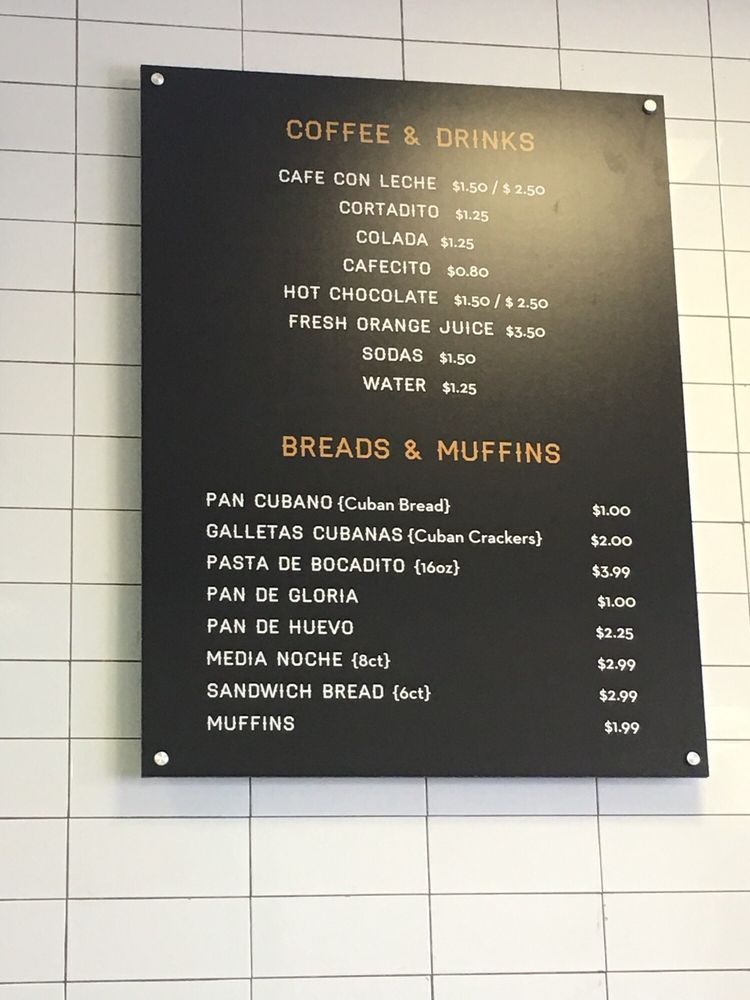 COFFEE & DRINKS
CAFE CON LECHE $1.50 / $ 2.50
CORTADITO $1.25
COLADA $1.25
CAFECITO $0.80
HOT CHOCOLATE $1.50 / $ 2.50
FRESH ORANGE JUICE $3.50
SODAS $1.50
WATER $1.25
BREADS & MUFFINS
PAN CUBANO {Cuban Bread} $1.00
GALLETAS CUBANAS {Cuban Crackers} $2.00
PASTA DE BOCADITO {16oz} $3.99
PAN DE GLORIA $1.00
PAN DE HUEVO $2.25
MEDIA NOCHE {8ct} $2.99
SANDWICH BREAD {6ct} $2.99
MUFFINS $1.99